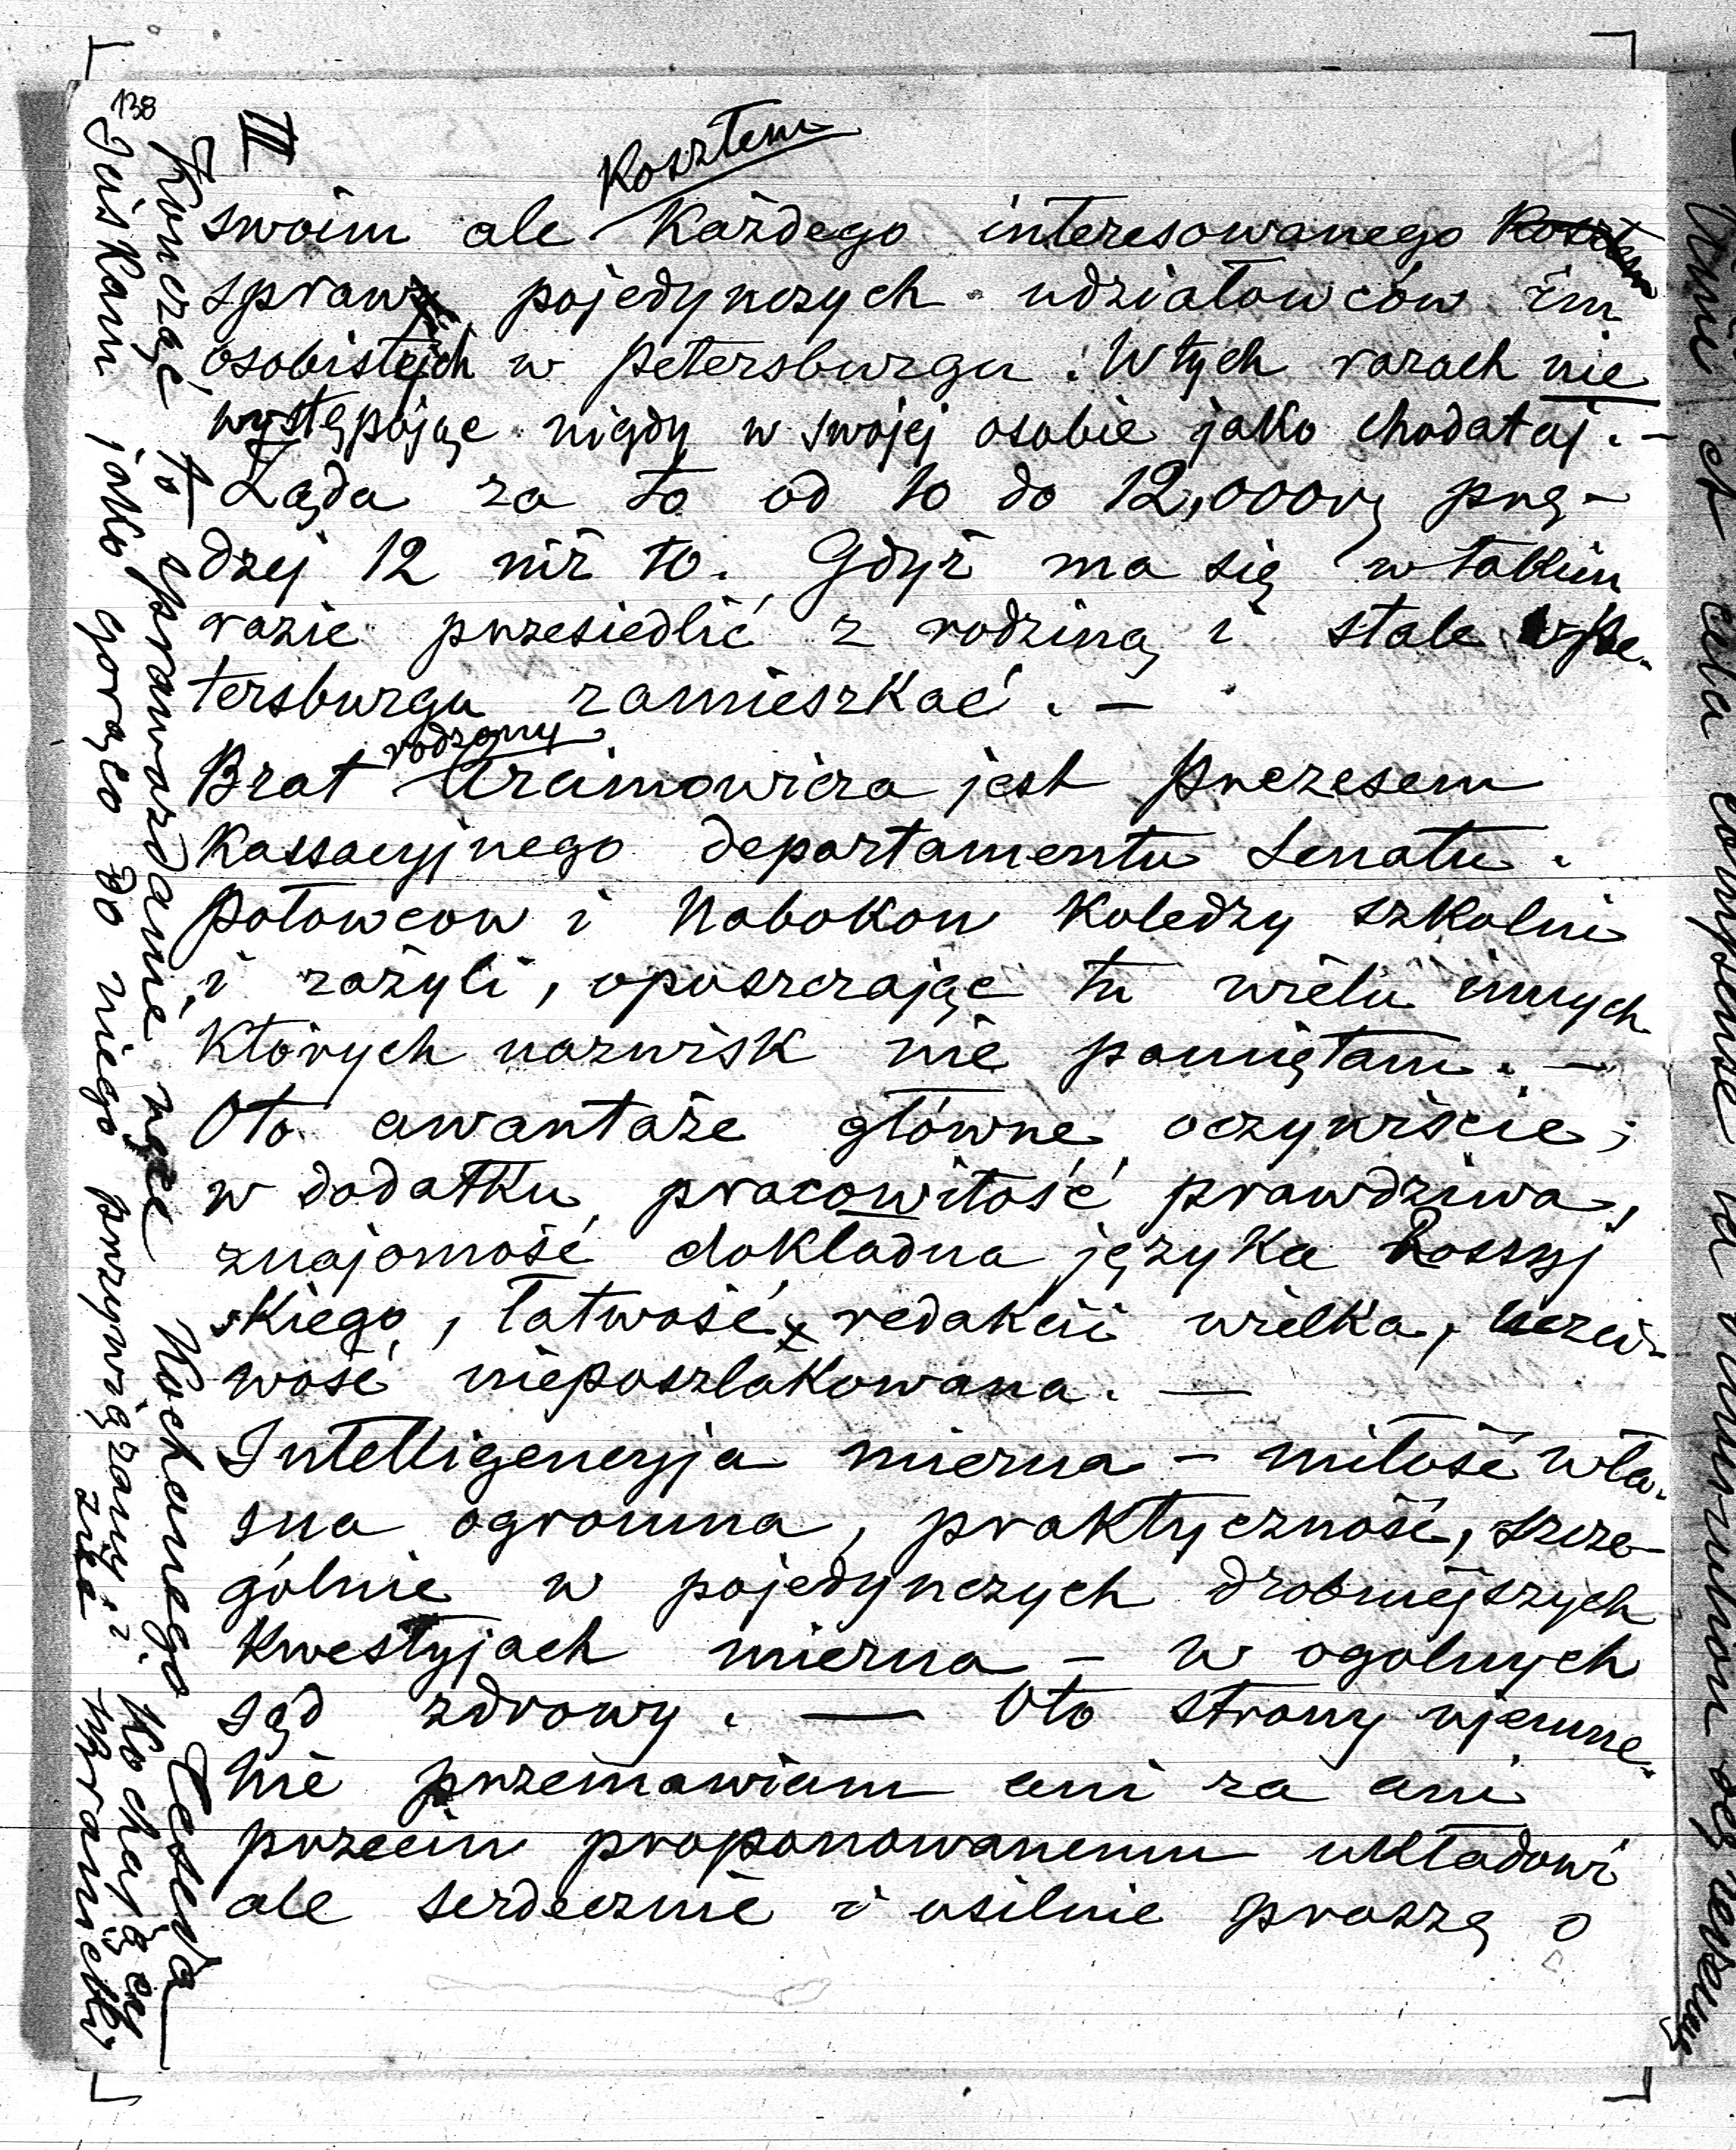 138
II
Kosztem
swoim ale Każdego interesowanego Kosztem
spraw pojedynczych udziałowców im
osobistych w petersburgu. W tych razach nie
występując nigdy w swojej osobie jako chodataj. –
Żąda za to od 10 do 12,000 prę-
dzej 12 niż 10. Gdyż ma się w takim
razie przesiedlić z rodziną i stale w Pe-
tersburgu zamieszkać. –
rodzony
Brat Arcimowicza jest prezesem
Kassacyjnego departamentu Senatu.
Połowcow i Nabokow Koledzy szkolni
i zażyli, opuszczając tu wielu innych
których nazwisk nie pamiętam. –
Oto awantaże główne oczywiście;
w dodatku pracowitość prawdziwa,
znajomość dokładna języka Rossyj
skiego, łatwość redakcii wielka, uczci-
wość nieposzlakowana. –
Intelligencyja mierna – miłość wła-
sna ogromna, praktyczność, szcze-
gólnie w pojedynczych drobniejszych
Kwestyjach mierna – w ogolnych
sąd zdrowy. — Oto strony ujemne.
Nie przemawiam ani za ani
przeciw proponowanemu układowi
ale serdecznie i usilnie proszę o
Kończąc to sprawozdanie ręce Kochanego Prezesa
ściskam jako gorąco do niego przywiązany i Kochający